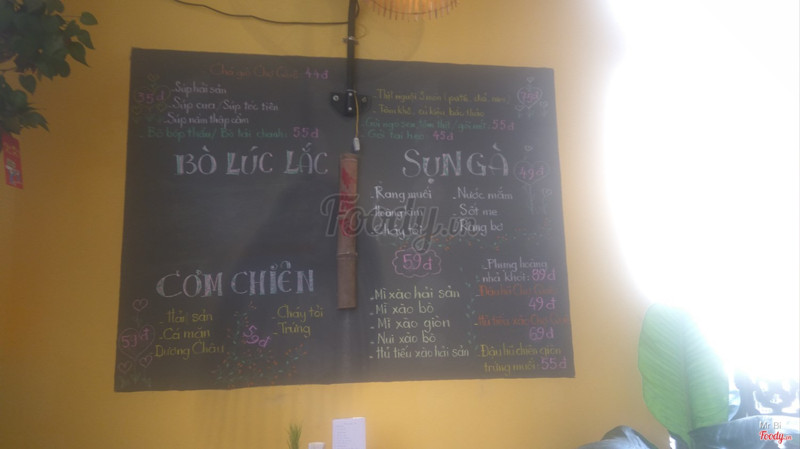 Chả giò Chợ Gạo 44đ
35đ
- Súp hải sản
- Súp cua / Súp tóc tiên
- Súp nấm thập cẩm
- Bò bóp thấu / Bò tái chanh: 55đ
55đ
Gỏi 45đ
BÒ LÚC LẮC
SỤN GÀ
49đ
- Rang muối
- Hồng kim
- Cháy tỏi
- Nước mắm
- Sốt me
- Rang bơ
59đ
CƠM CHIÊN
- Hải sản
- Cá mặn
Dương Châu
- Cháy tỏi
- Trứng
59đ
5đ
- Mì xào hải sản
- Mì xào bò
- Mì xào giòn
- Nui xào bò
- Hủ tiếu xào hải sản
- Phụng hoàng
nhả khói: 89đ
49đ
69đ
- Đậu hủ chiên giòn
trứng muối: 55đ
Foody.vn
Mr Bi
Foody.vn